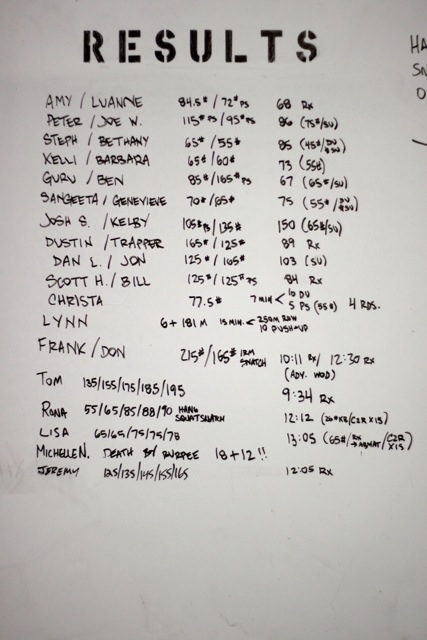 RESULTS
HA
SN
O
AMY / LUANNE 84.5# / 72# PS 68 Rx
PETER / JOE W. 115# PS / 95# PS 86 (75#/SU)
STEPH / BETHANY 65# / 55# 85 (45#/DU #SU)
KELLI / BARBARA 65# / 60# 73 (55#)
GURU / BEN 85# / 165# PS 67 (65#/SU)
SANGEETA / GENEVIEVE 70# / 65# 75 (55#/DU #SU)
JOSH S. / KELBY 105# PS / 135# 150 (65#/SU)
DUSTIN / TRAPPER 165# / 125# 89 Rx
DAN L. / JON 125# / 105# 103 (SU)
SCOTT H. / BILL 125# / 125# PS 84 Rx
CHRISTA 77.5# 7 MIN < 10 DU 5 PS (55#) 4 RDS.
LYNN 6 + 181 M 15 MIN. < 250M ROW 10 PUSHUP
FRANK / DON 215# / 165# 1RM SNATCH 10:11 Rx / 12:30 Rx
(ADV. WOD)
TOM 135/155/175/185/195 9:34 Rx
RONA 55/65/85/88/90 HANG SQUAT SNATCH 12:12 (26# KB/C2R X 15)
LISA 65/65/75/75/78 13:05 (65#/Rx → ABMAT/C2R X15)
MICHELLE N. DEATH BY BURPEE 18 + 12 !!
JEREMY 125/135/145/155/165 12:05 Rx